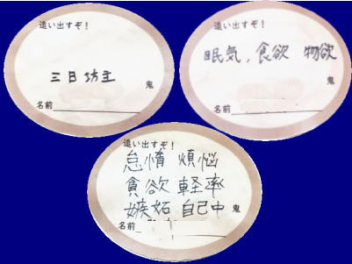 追い出すぞ！
三日坊主
鬼
名前
追い出すぞ！
眠気，食欲 物欲
鬼
名前
追い出すぞ！
怠惰 煩悩
貪欲 軽率
嫉妬 自己中 鬼
名前